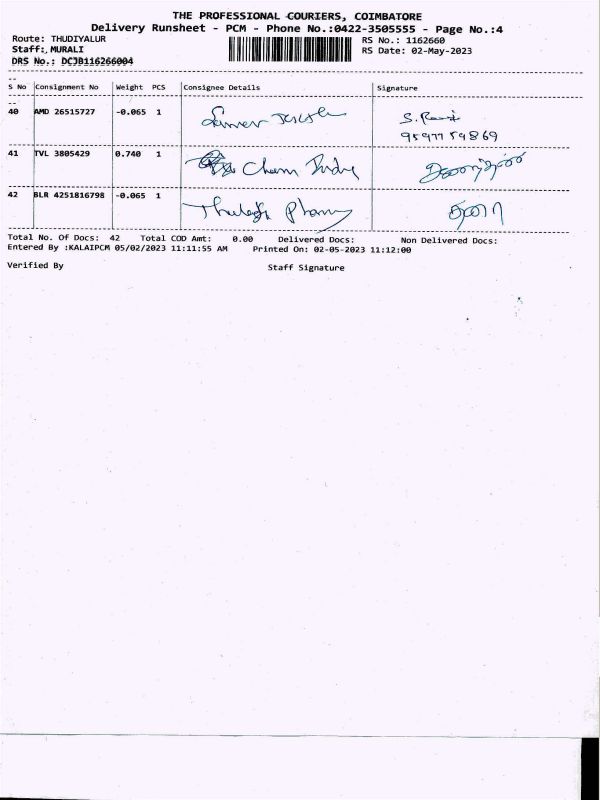 THE PROFESSIONAL COURIERS, COIMBATORE
Delivery Runsheet - PCM - Phone No.:0422-3505555 - Page No.:4
Route: THUDIYALUR
RS No.: 1162660
Staff: MURALI
RS Date: 02-May-2023
DRS No.: DCJB116266004
S No Consignment No Weight PCS Consignee Details Signature
40 AMD 26515727 -0.065 1
S. Ravi
9597759869
41 TVL 3805429 0.740 1 Chem
42 BLR 4251816798 -0.065 1
Total No. Of Docs: 42 Total COD Amt: 0.00 Delivered Docs: Non Delivered Docs:
Entered By :KALAIPCM 05/02/2023 11:11:55 AM Printed On: 02-05-2023 11:12:00
Verified By Staff Signature